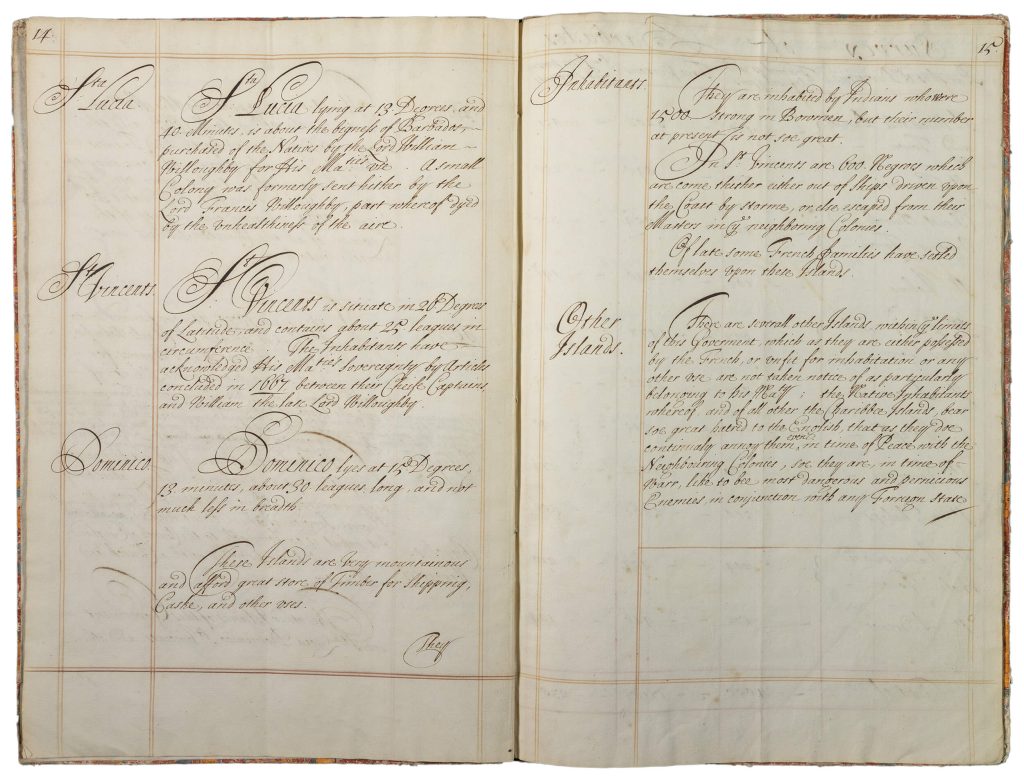 14.
Sta
Lucia
Sta Lucia lying at 13 Degrees, and
40 Minutes, is about the bigness of Barbados,
purchased of the Natives by the Lord William
Willoughby for His Maties use. A small
Colony was formerly sent hither by the
Lord Francis Willoughby, part whereof dyed
by the unhealthiness of the aire.
St Vincents.
St Vincents is situate in Degrees
of Latitude, and contains about 25 leagues in
circumference. The Inhabitants have
acknowledged His Maties Sovereignty by Articles
concluded in 1667 between their Cheife Captains,
and William the late Lord Willoughby.
Dominico.
Dominico lyes at 15 Degrees,
13 minutes, about 30 leagues long, and not
much less in breadth.
These Islands are very mountainous
and afford great store of Timber for Shipping,
Caske, and other uses.
They
15.
Inhabitants.
They are inhabited by Indians who were
1500 Strong in Bowmen, but their number
at present is not soe great.
In St Vincents are 600 Negros which
are come thither either out of Ships driven upon
the Coast by storme, or else escaped from their
Masters in ye neighboring Colonies.
Of late some French families have setled
themselves upon these Islands
Other
Islands.
There are severall other Islands within ye limits
of this Goverment, which as they are either possessed
by the French, or unfit for inhabitation, or any
other use are not taken notice of as particularly
belonging to his Maty; the Native Inhabitants
whereof, and of all other the Charibbee Islands, bear
soe great hatred to the English, that as they doe
continualy annoy them, even in time of Peace with the
Neighbouring Colonies, soe they are, in time of
Warr, like to bee most dangerous and pernicious
Enemies, in conjunction with any Foreign State